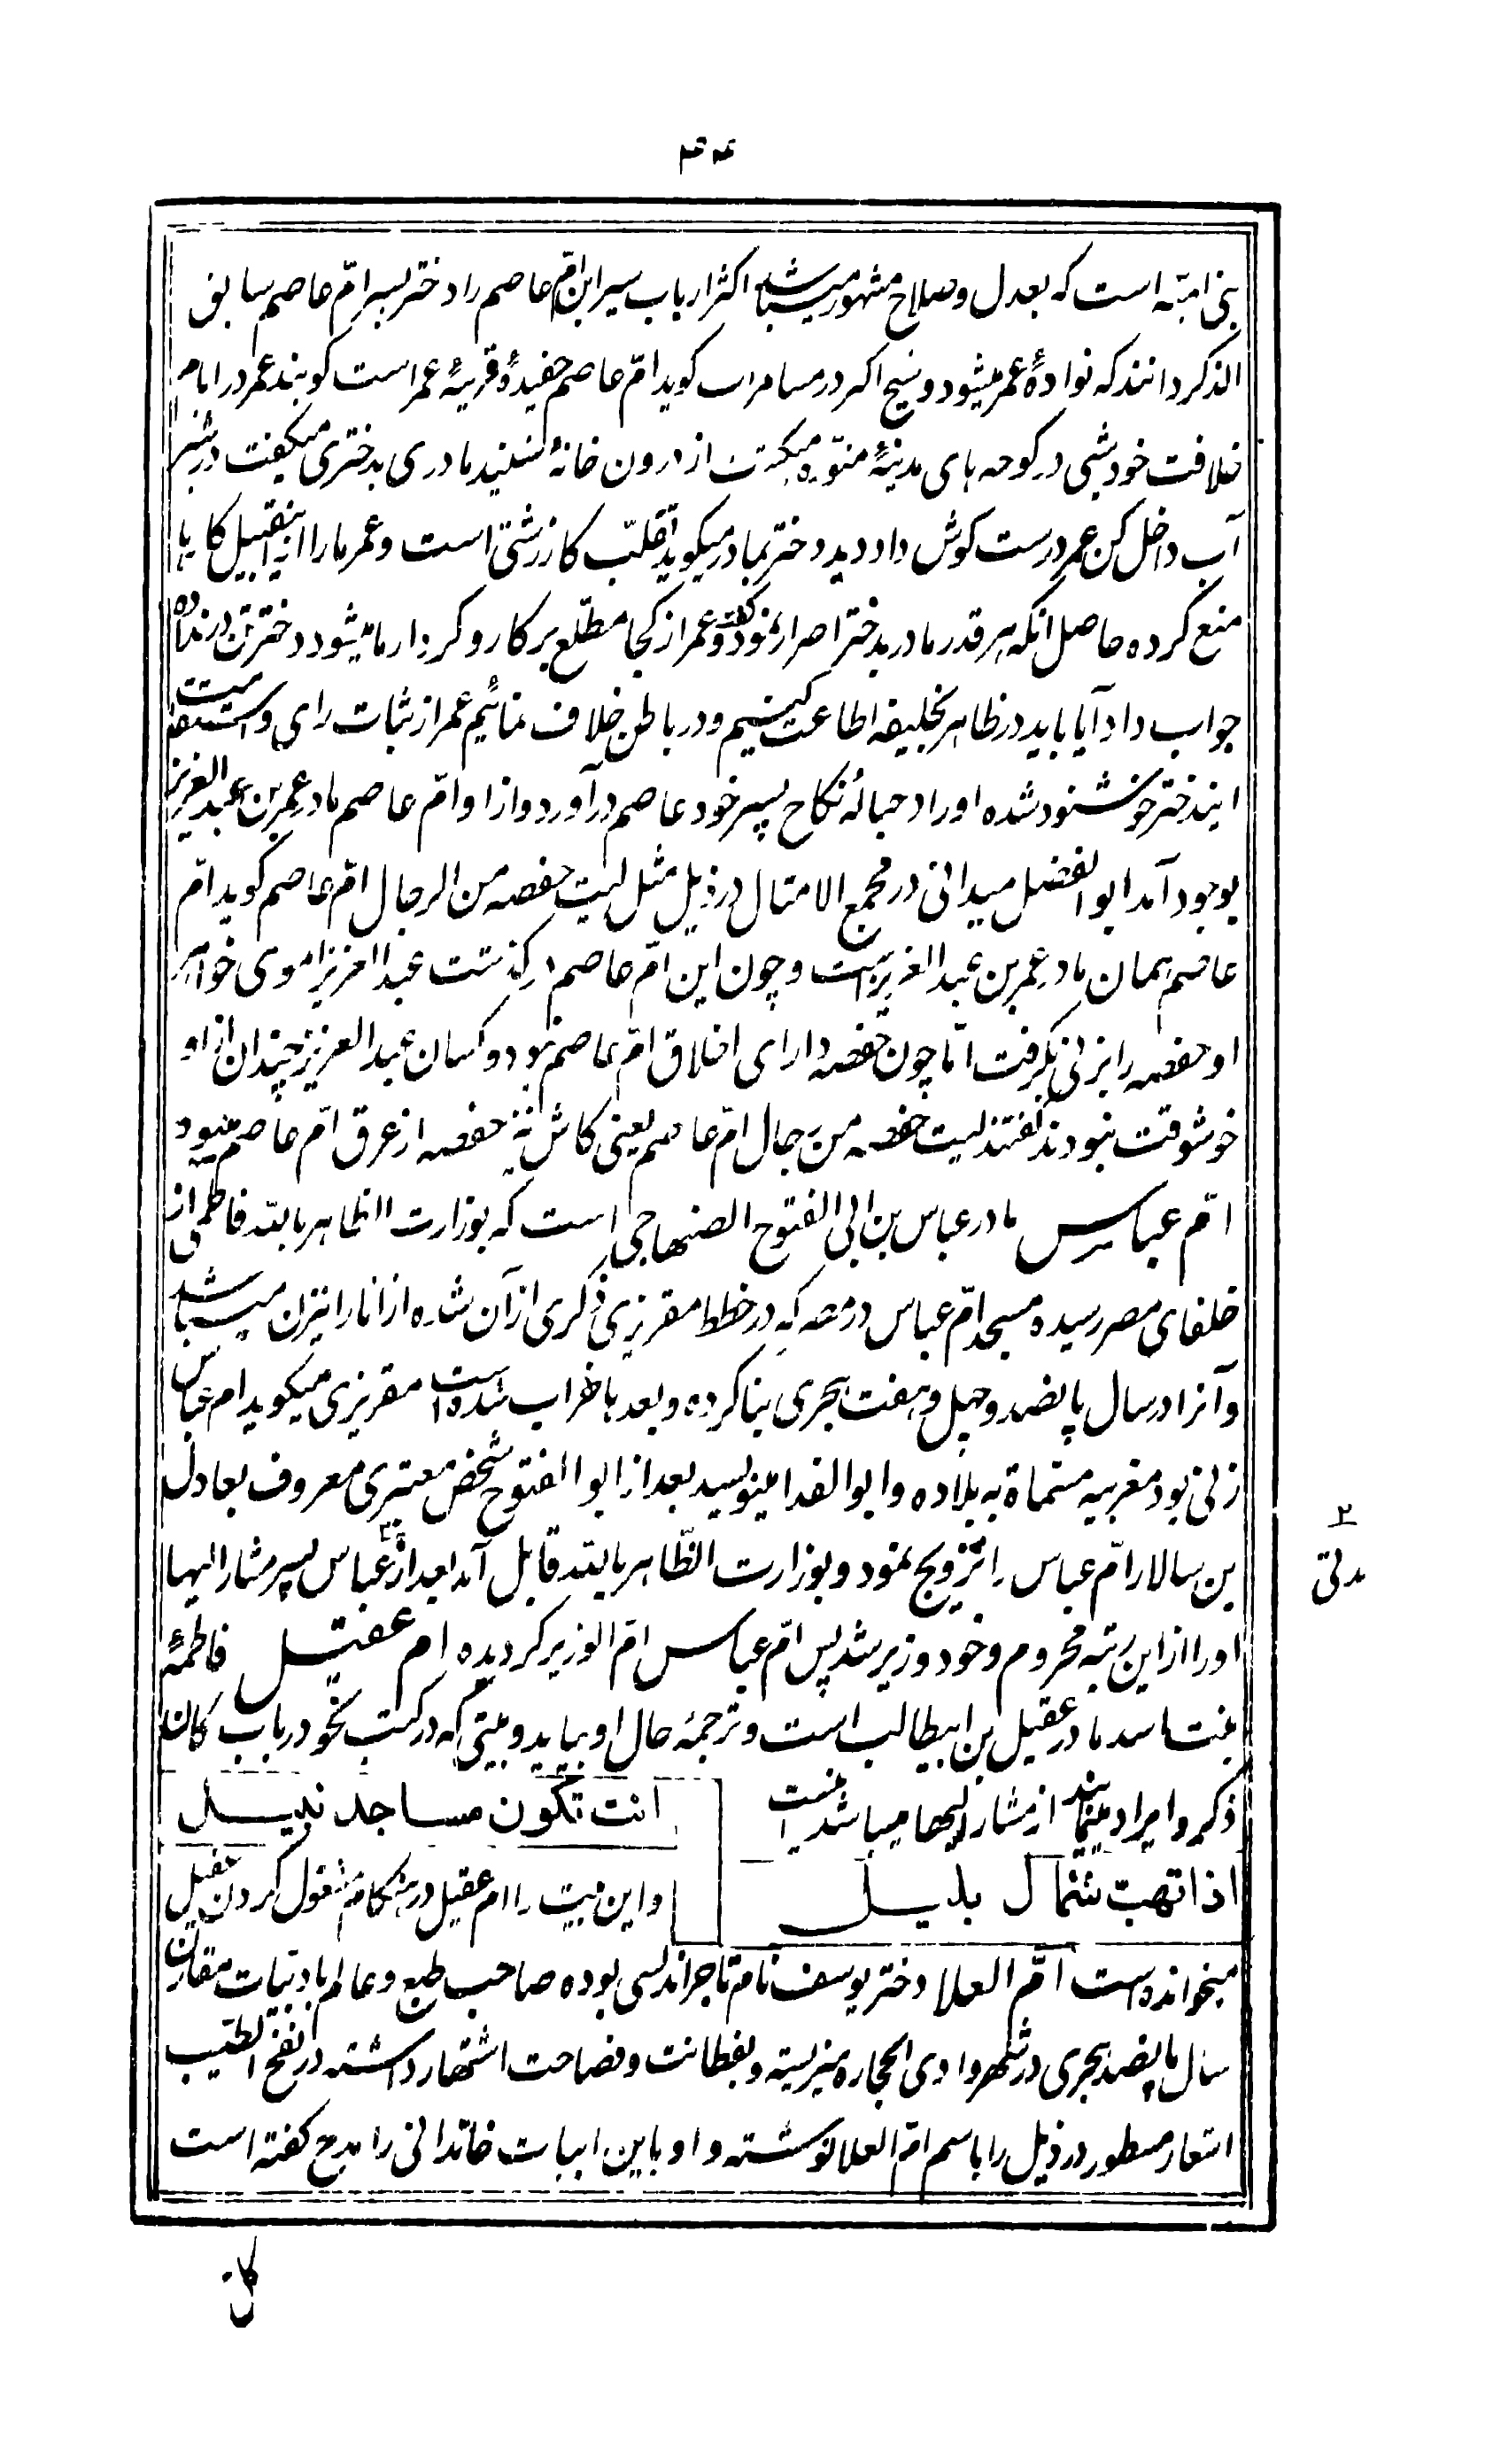 ۴۴
بنی امیّه است که بعدل و صلاح مشهور میباشد اکثر ارباب سیر این امّ عاصم را دختر پسر امّ عاصم سابق
الذکر دانند که نوادهٔ عمر میشود و شیخ اکبر در مسامرات کوید امّ عاصم حفیدهٔ قریبهٔ عمر است کویند عمر در ایام
خلافت خود شبی در کوچه های مدینهٔ منوّره میکشت از درون خانهٔ شنید مادری بدختری میکفت در شیر
آب داخل کن عمر درست کوش داد دید دختر بمادر میکوید تقلّب کار زشتی است و عمر ما را از اینقبیل کارها
منع کرده حاصل انکه هر قدر مادر بدختر اصرار نمود و کفت عمر از کجا مطّلع بر کار و کردار ما میشود دختر تن در نداده
جواب داد آیا باید در ظاهر بخلیفه اطاعت کنیم و در باطن خلاف نمائیم عمر از ثبات رای و استقامت
ایندختر خوشنود شده او را در حبالهٔ نکاح پسر خود عاصم درآورد و از او امّ عاصم مادر عمر بن عبدالعزیز
بوجود آمد ابو الفضل میدانی در مجمع الامثال در ذیل مثل لیت حفصه من الرجال امّ عاصم کوید امّ
عاصم همان مادر عمر بن عبد العزیز است و چون این امّ عاصم درکذشت عبدالعزیز اموی خواهر
او حفصه را بزنی بکرفت امّا چون حفصه دارای اخلاق امّ عاصم نبود و کسان عبد العزیز چندان از او
خوشوقت نبودند کفتند لیت حفصه من رجال امّ عاصم یعنی کاش نیز حفصه از عرق امّ عاصم میبود
امّ عباس مادر عباس بن ابی الفتوح الصنهاجی است که بوزارت الظاهر بالله فاطمی از
خلفای مصر رسیده مسجد امّ عباس در مصر که در خطط مقریزی ذکری از آن شده از اثار اینزن میباشد
و آنرا در سال پانصد و چهل و هفت هجری بنا کرده و بعدها خراب شده است مقریزی میکوید ام عباس
زنی بود مغربیه مسماة به بلاده و ابو الفدا مینویسد بعد از ابو الفتوح شخص معتبری معروف بعادل
بن سالار امّ عباس را تزویج نمود و بوزارت الظّاهر بالله قابل آمد بعد از عباس پسر مشار الیها
۲
مدتی
او را از این رتبه محروم و خود وزیر شد پس امّ عباس امّ الوزیر کردیده ام عقیل فاطمهٔ
بنت اسد مادر عقیل بن ابیطالب است و ترجمهٔ حال او بیاید و بیتی که در کتب نحو در باب کان
ذکر و ایراد مینمایند از مشار الیها میباشد و اینست
انت تکون ماجد نبیل
اذا تهبّ شمال بلیل
و این بیت را ام عقیل در هنکام مشغول کردن عقیل
میخوانده است امّ العلا دختر یوسف نام تاجر اندلسی بوده صاحب طبع و عالم بادبیات مقارن
سال پانصد هجری در شهر وادی الحجاره میزیسته و بفطانت و فصاحت اشتهار داشته در نفح الطیب
اشعار مسطور در ذیل را باسم امّ العلا نوشته و او باین ابیات خاندانی را مدح کفته است
کل